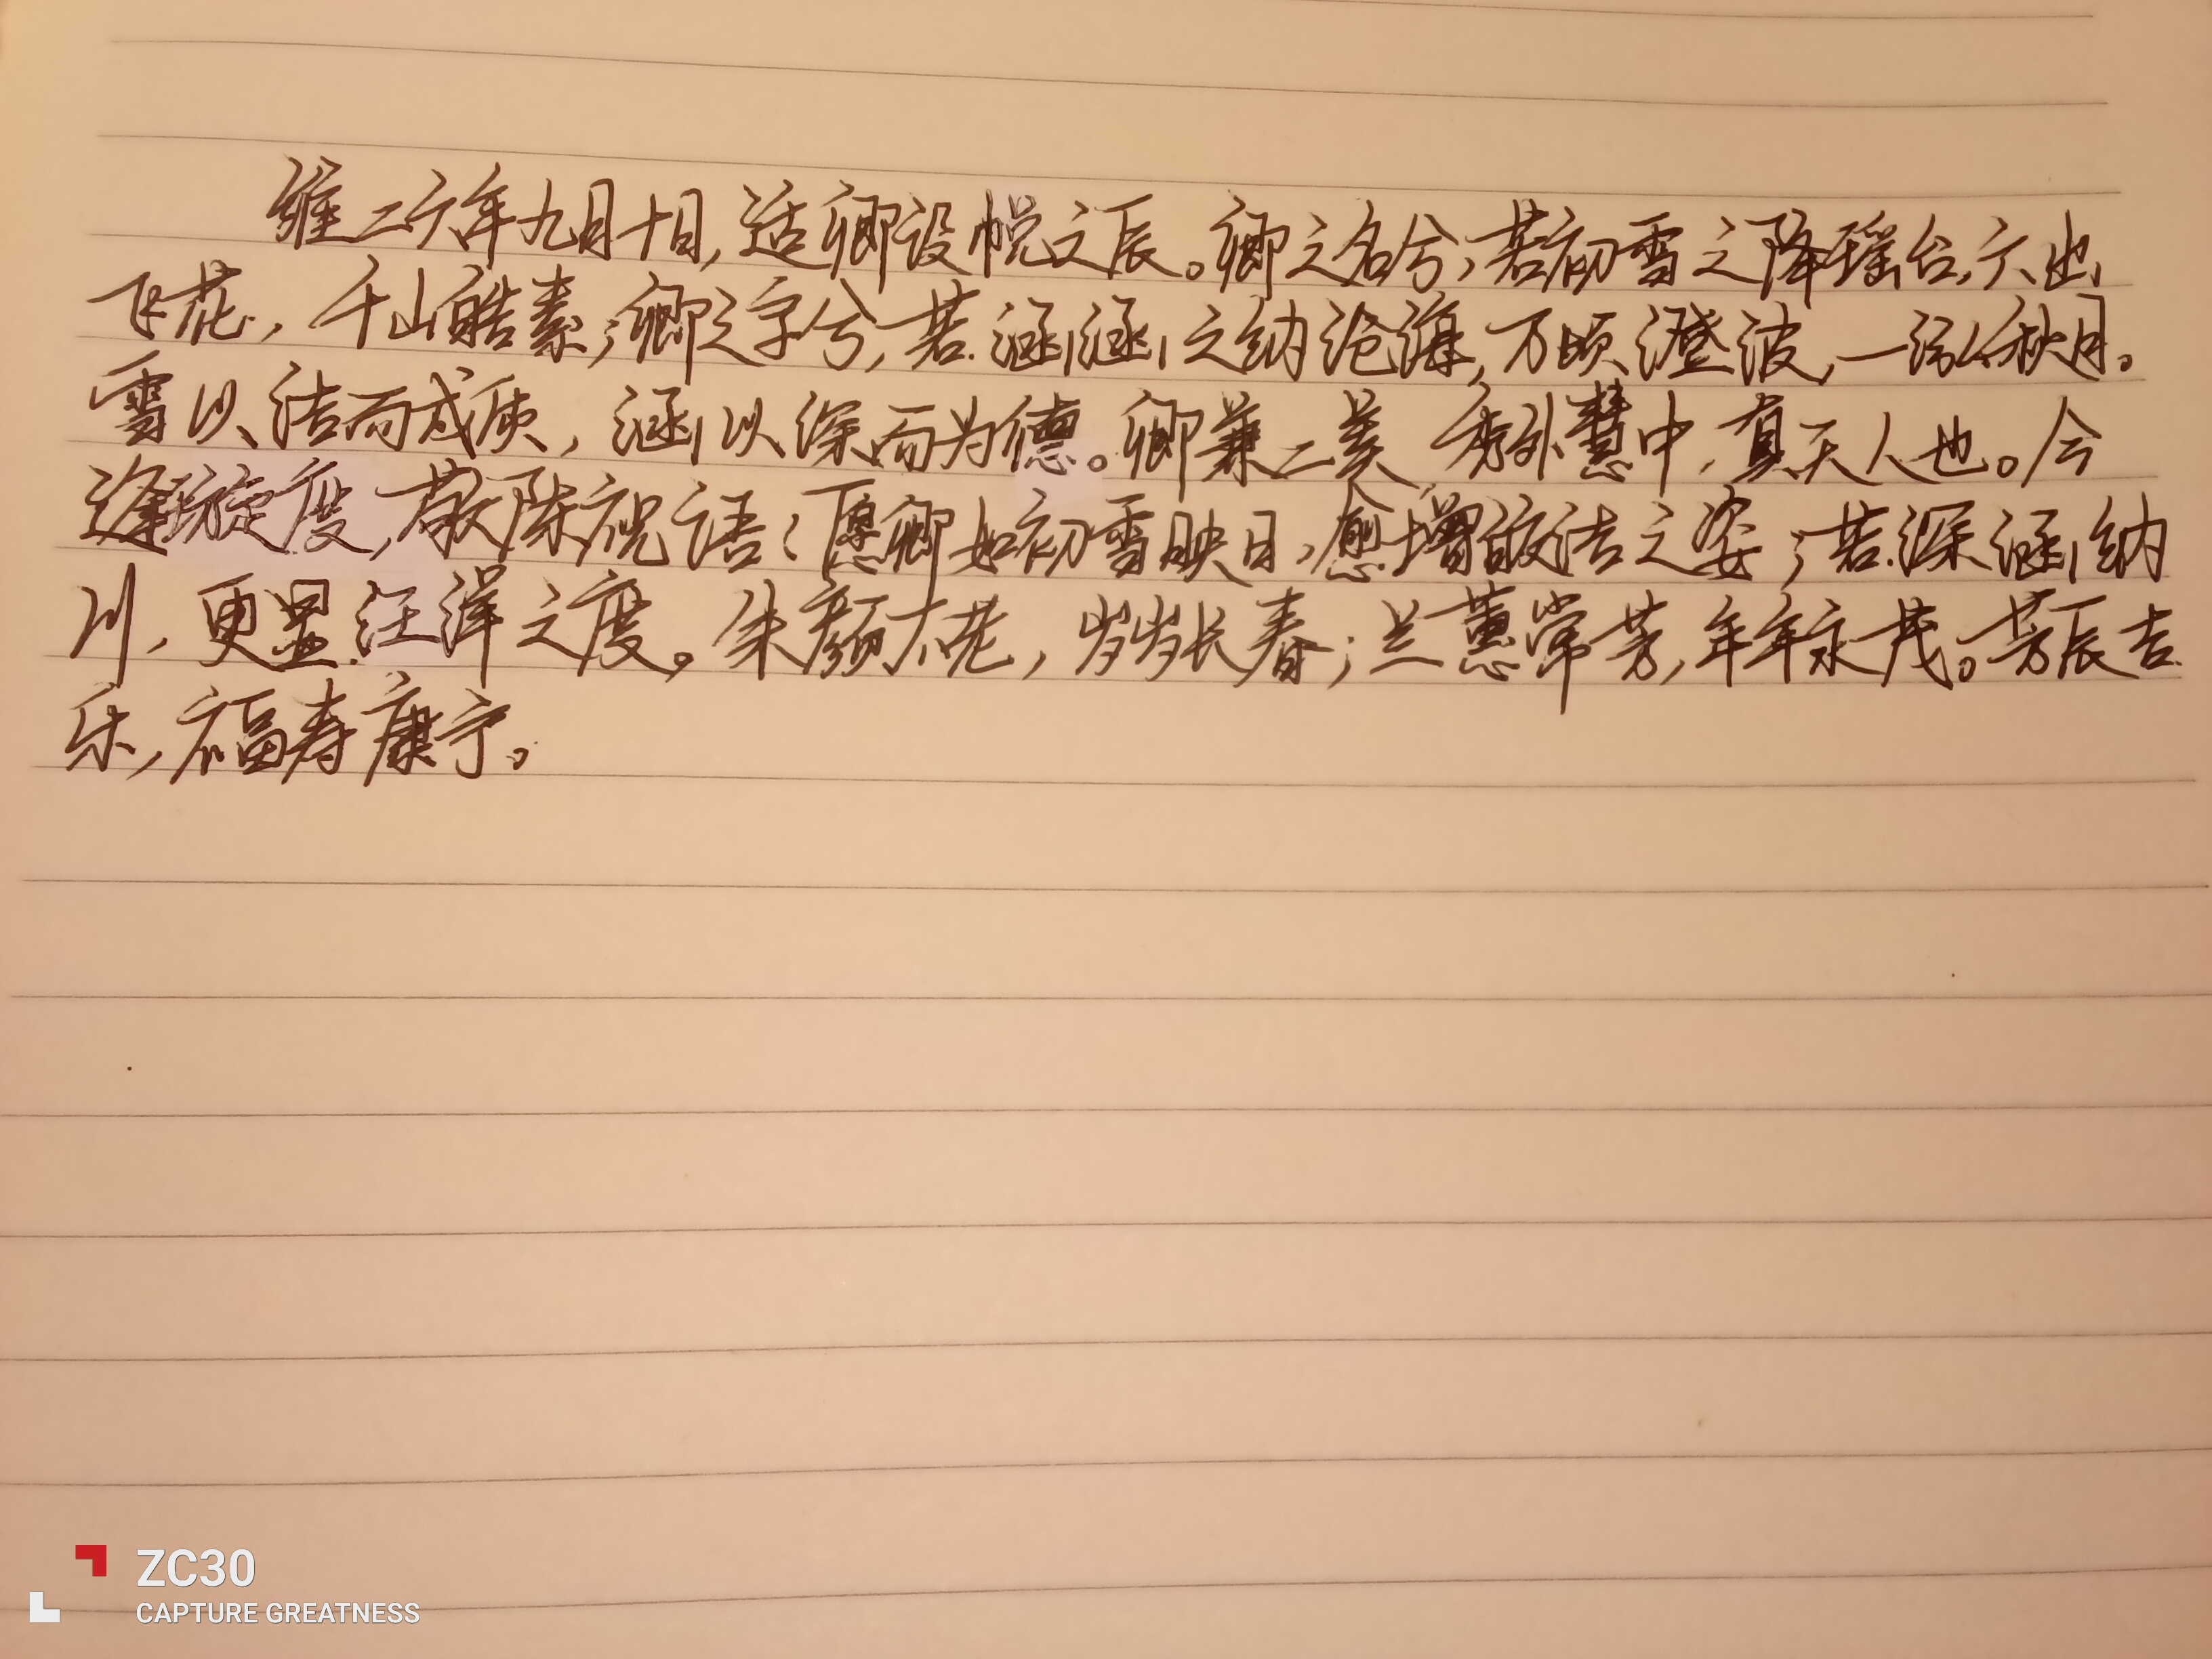 维二六年九月十日，适卿设帨之辰。卿之名兮，若初雪之降瑶台，六出
飞花，千山皓素；卿之字兮，若涵涵之纳沧海，万顷澄波，一泓秋月。
雪以洁而成质，涵以深而为德。卿兼二美，秀外慧中，真天人也。今
逢璇度，敬陈祝语：愿卿如初雪映日，愈增皎洁之姿；若深涵纳
川，更显汪洋之度。朱颜不老，岁岁长春；兰蕙常芳，年年永茂。芳辰吉
乐，福寿康宁。
ZC30
CAPTURE GREATNESS